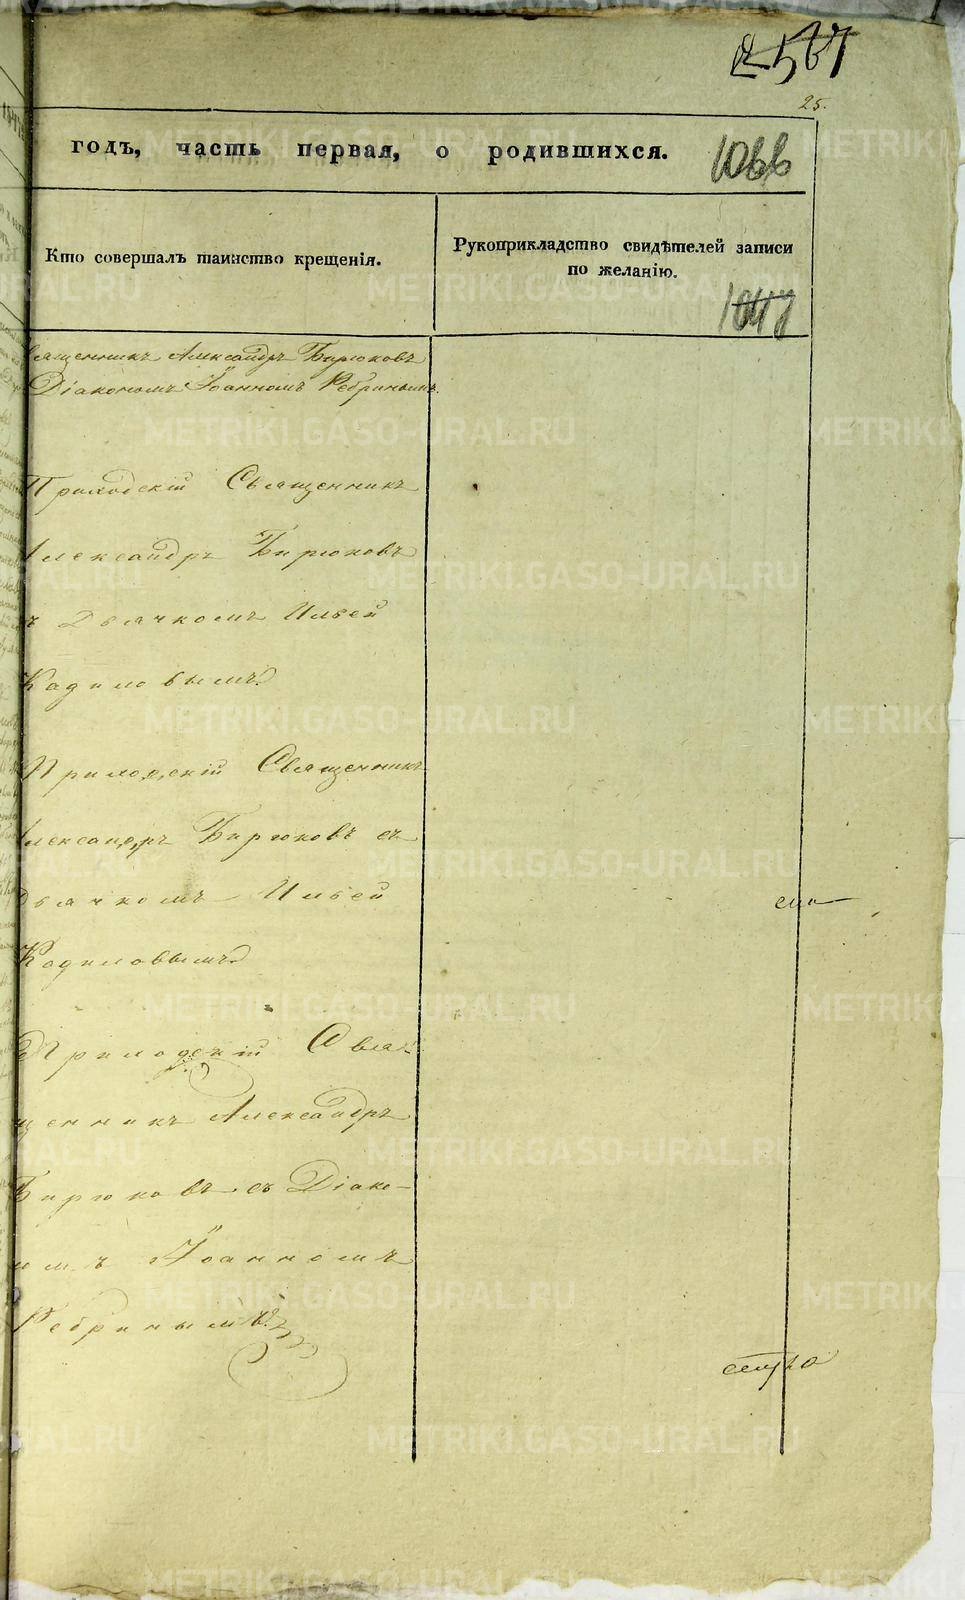 567
25.
годъ, часть первая, о родившихся.
1066
Кто совершалъ таинство крещенія.
Рукоприкладство свидѣтелей записи
по желанію.
1047
Священникъ Александръ Бирюковъ
Діакономъ Іоанномъ Ребринымъ.
Приходскій Священникъ
Александръ Бирюковъ
съ Дьячкомъ Ильей
Кадиловымъ
Приходскій Священникъ
Александръ Бирюковъ съ
Дьячкомъ Ильей
Кадиловымъ
Приходскій Свя-
щенникъ Александръ
Бирюковъ съ Діако-
номъ Іоанномъ
Ребринымъ.
METRIKI.GASO-URAL.RU